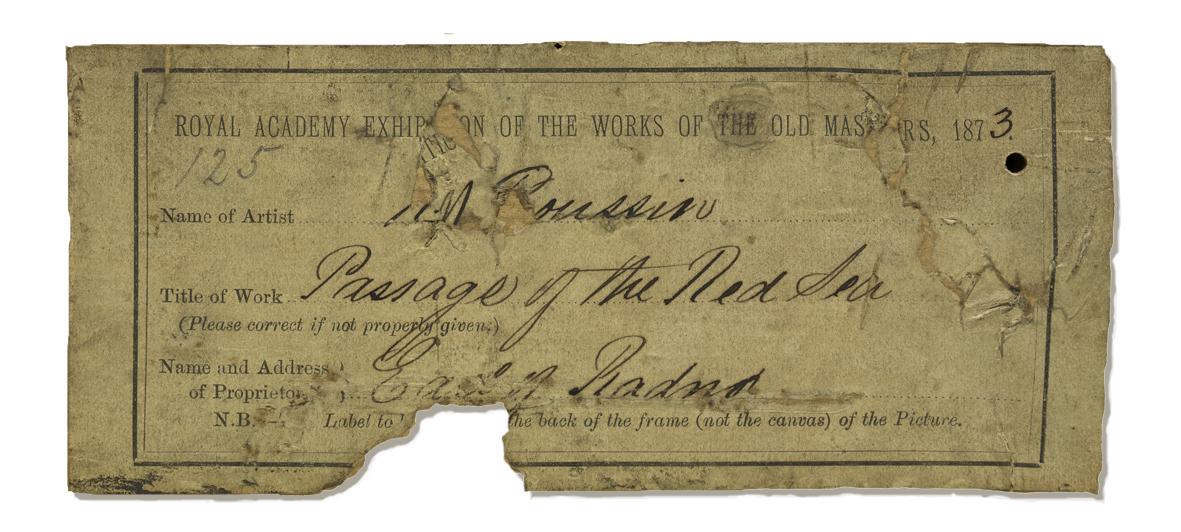 ROYAL ACADEMY EXHIB ON OF THE WORKS OF THE OLD MAS RS, 1873.
125
Name of Artist Poussin
Title of Work Passage of the Red Sea
(Please correct if not properly given.)
Name and Address
of Proprietor Earl of Radnor
N.B.— Label to the back of the frame (not the canvas) of the Picture.